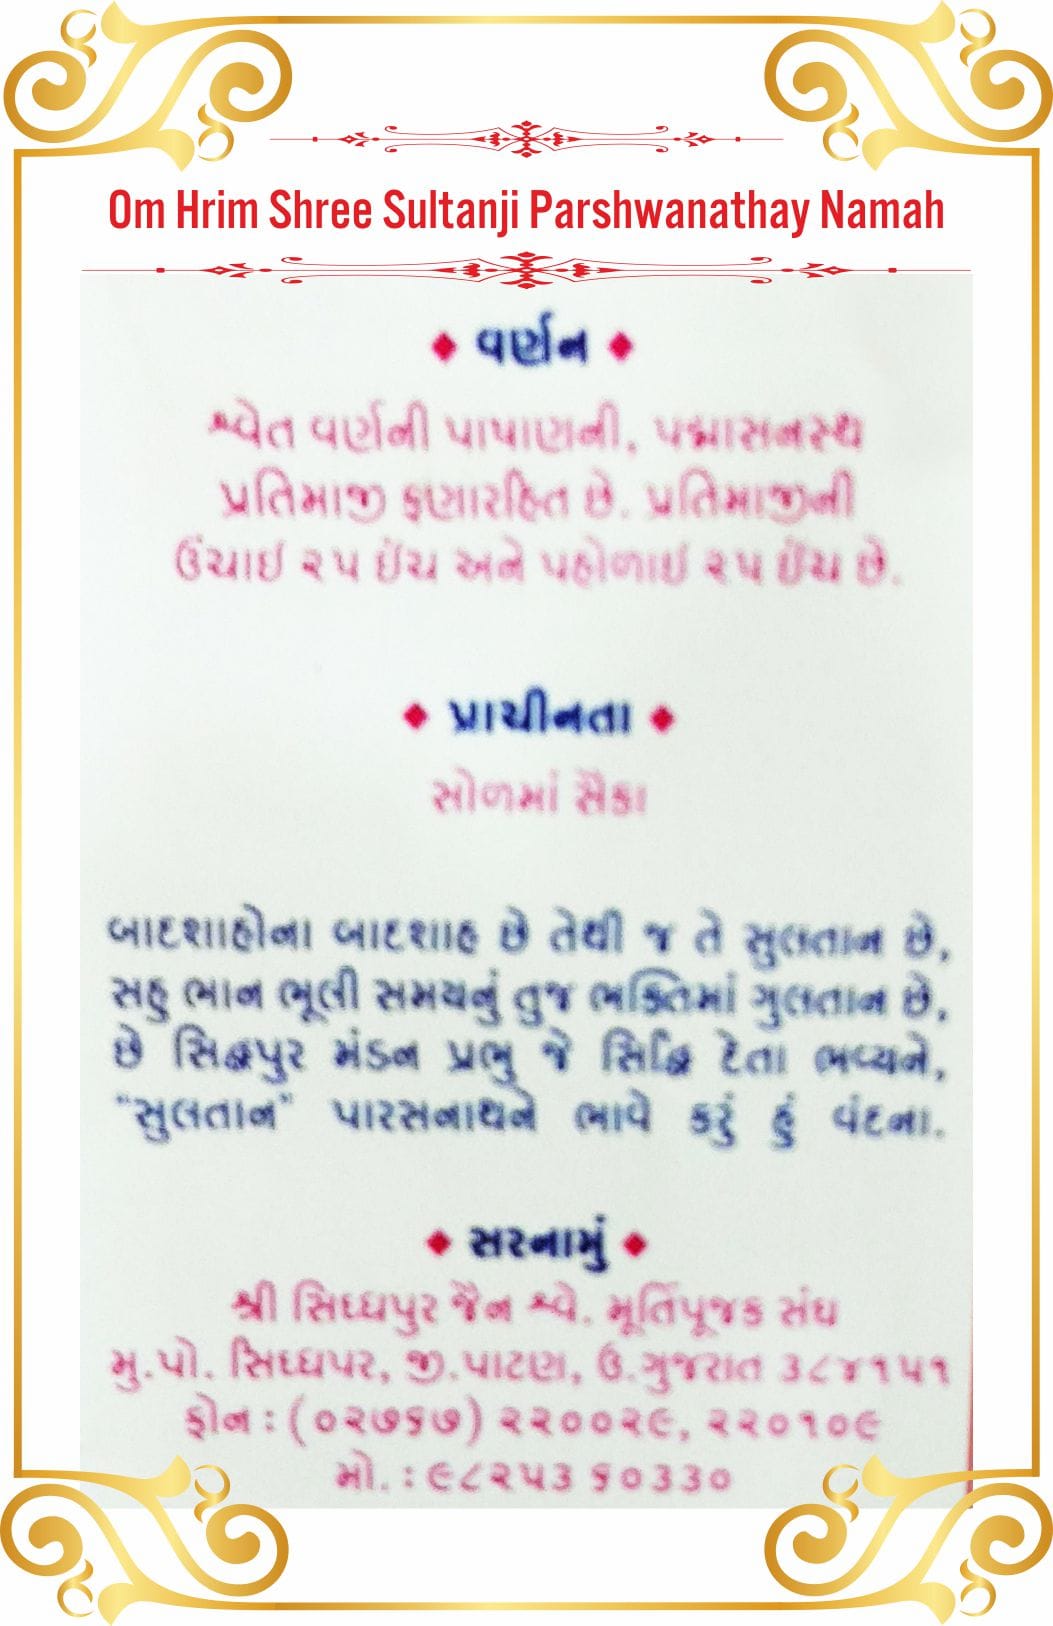 Om Hrim Shree Sultanji Parshwanathay Namah
વર્ણન
શ્વેત વર્ણની પાષાણની, પદ્માસનસ્થ
પ્રતિમાજી ફણારહિત છે. પ્રતિમાજીની
ઉંચાઈ ૨૫ ઈંચ અને પહોળાઈ ૨૫ ઈંચ છે.
પ્રાચીનતા
સોળમાં સૈકા
બાદશાહોના બાદશાહ છે તેથી જ તે સુલતાન છે,
સહુ ભાન ભૂલી સમયનું તુજ ભક્તિમાં ગુલતાન છે,
છે સિદ્ધપુર મંડન પ્રભુ જે સિદ્ધિ દેતા ભવ્યને,
"સુલતાન" પારસનાથને ભાવે કરું હું વંદના.
સરનામું
શ્રી સિધ્ધપુર જૈન શ્વે. મૂર્તિપૂજક સંઘ
મુ.પો. સિધ્ધપર, જી.પાટણ, ઉ.ગુજરાત ૩૮૪૧૫૧
ફોન : (૦૨૭૬૭) ૨૨૦૦૨૯, ૨૨૦૧૦૯
મો. : ૯૮૨૫૩ ૬૦૩૩૦